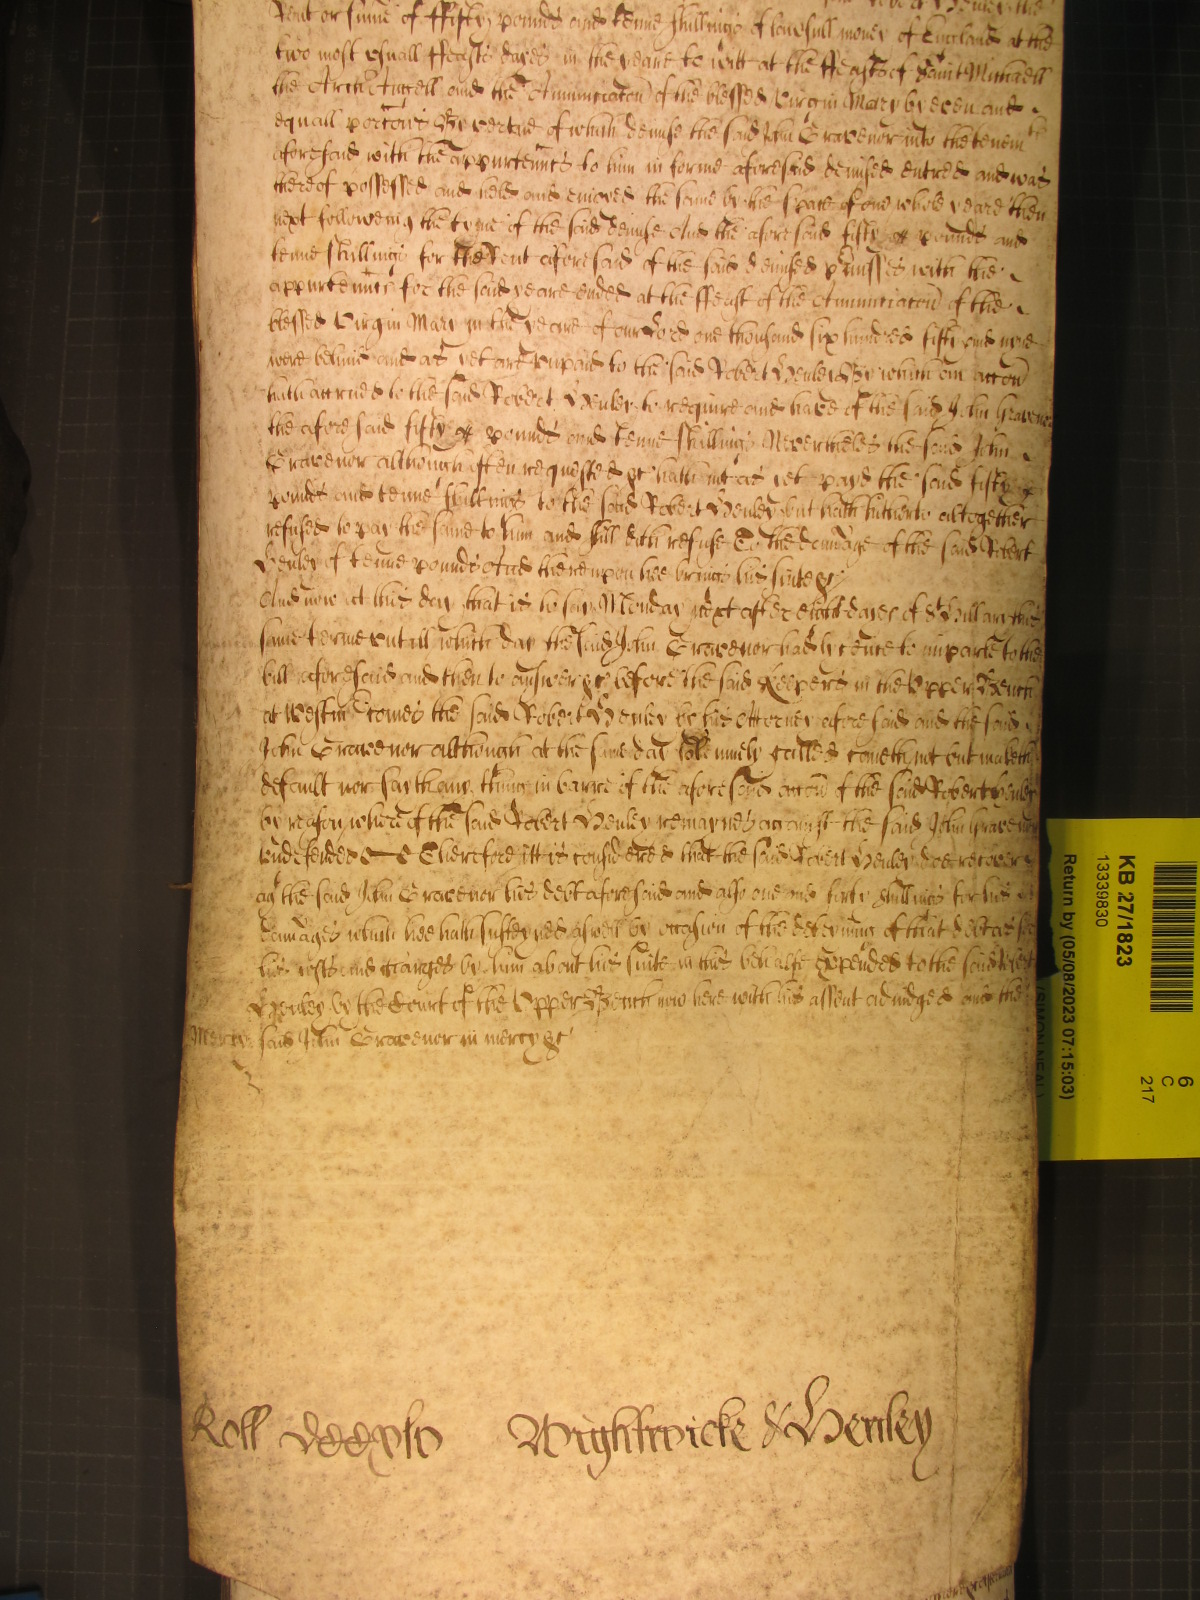 Rent or sume of ffifty pounds and tenne shillings of lawfull money of England at the
two most vsuall ffeasts dayes in the yeare to witt at the ffeasts of Saint Michaell
the Arch Angell and the Annunciacon of the blessed Virgin Mary by even and
equall porcons By vertue of which demise the said John Gravenor into the tenemts
aforesaid with the appurtennces to him in forme aforesaid demised entred and was
thereof possessed and held and enioyed the same by the space of one whole yeare then
next followeing the tyme of the said demise And the aforesaid fifty pounds and
tenne shillings for the Rent aforesaid of the said demised pmisses with the
appurtennces for the said yeare ended at the ffeast of the Annunciacon of the
blessed Virgin Mary in the yeare of our Lord one thousand six hundred fifty and nyne
were behind and as yet are vnpaid to the said Robert Henley By which an accon
hath accrued to the said Robert Henley to require and have of the said John Gravenor
the aforesaid fifty pounds and tenne shillings Neverthelesse the said John
Gravenor although often requested &c hath not as yet payd the said fifty
pounds and tenne shillings to the said Robert Henley but hath hitherto altogether
refused to pay the same to him and still doth refuse To the damage of the said Robert
Henley of tenne pounds And thereupon hee brings his suite &c
And now at this day that is to say Monday next after eight dayes of St Hillary this
same terme vntill which day the said John Gravenor had lycence to imparle to the
bill aforesaid and then to answer &c before the said Keepers in the Vpper Bench
at Westmr comes the said Robert Henley by his Attorney aforesaid and the said
John Gravenor although at the same day solemnely called cometh not but maketh
default nor sayth any thing in barre of the aforesaid accon of the said Robert Henley
by reason whereof the said Robert Henley remaynes against the said John Gravenor
vndefended Therefore itt is considered that the said Robert Henley doe recover
agt the said John Gravenor his debt aforesaid and also one and forty shillings for his
damages which hee hath susteyned aswell by occasion of the deteyning of that debt as for
his costs and charges by him about his suite in this behalfe expended to the said Robert
Henley by the Court of the Vpper Bench now here with his assent adiudged and the
Mercy said John Gravenor in mercy &c
Roll Wightwicke & Henley
KB 27/1823
13339830
Return by (05/08/2023 07:15:03)
(SIMON NEAL)
6
C
217